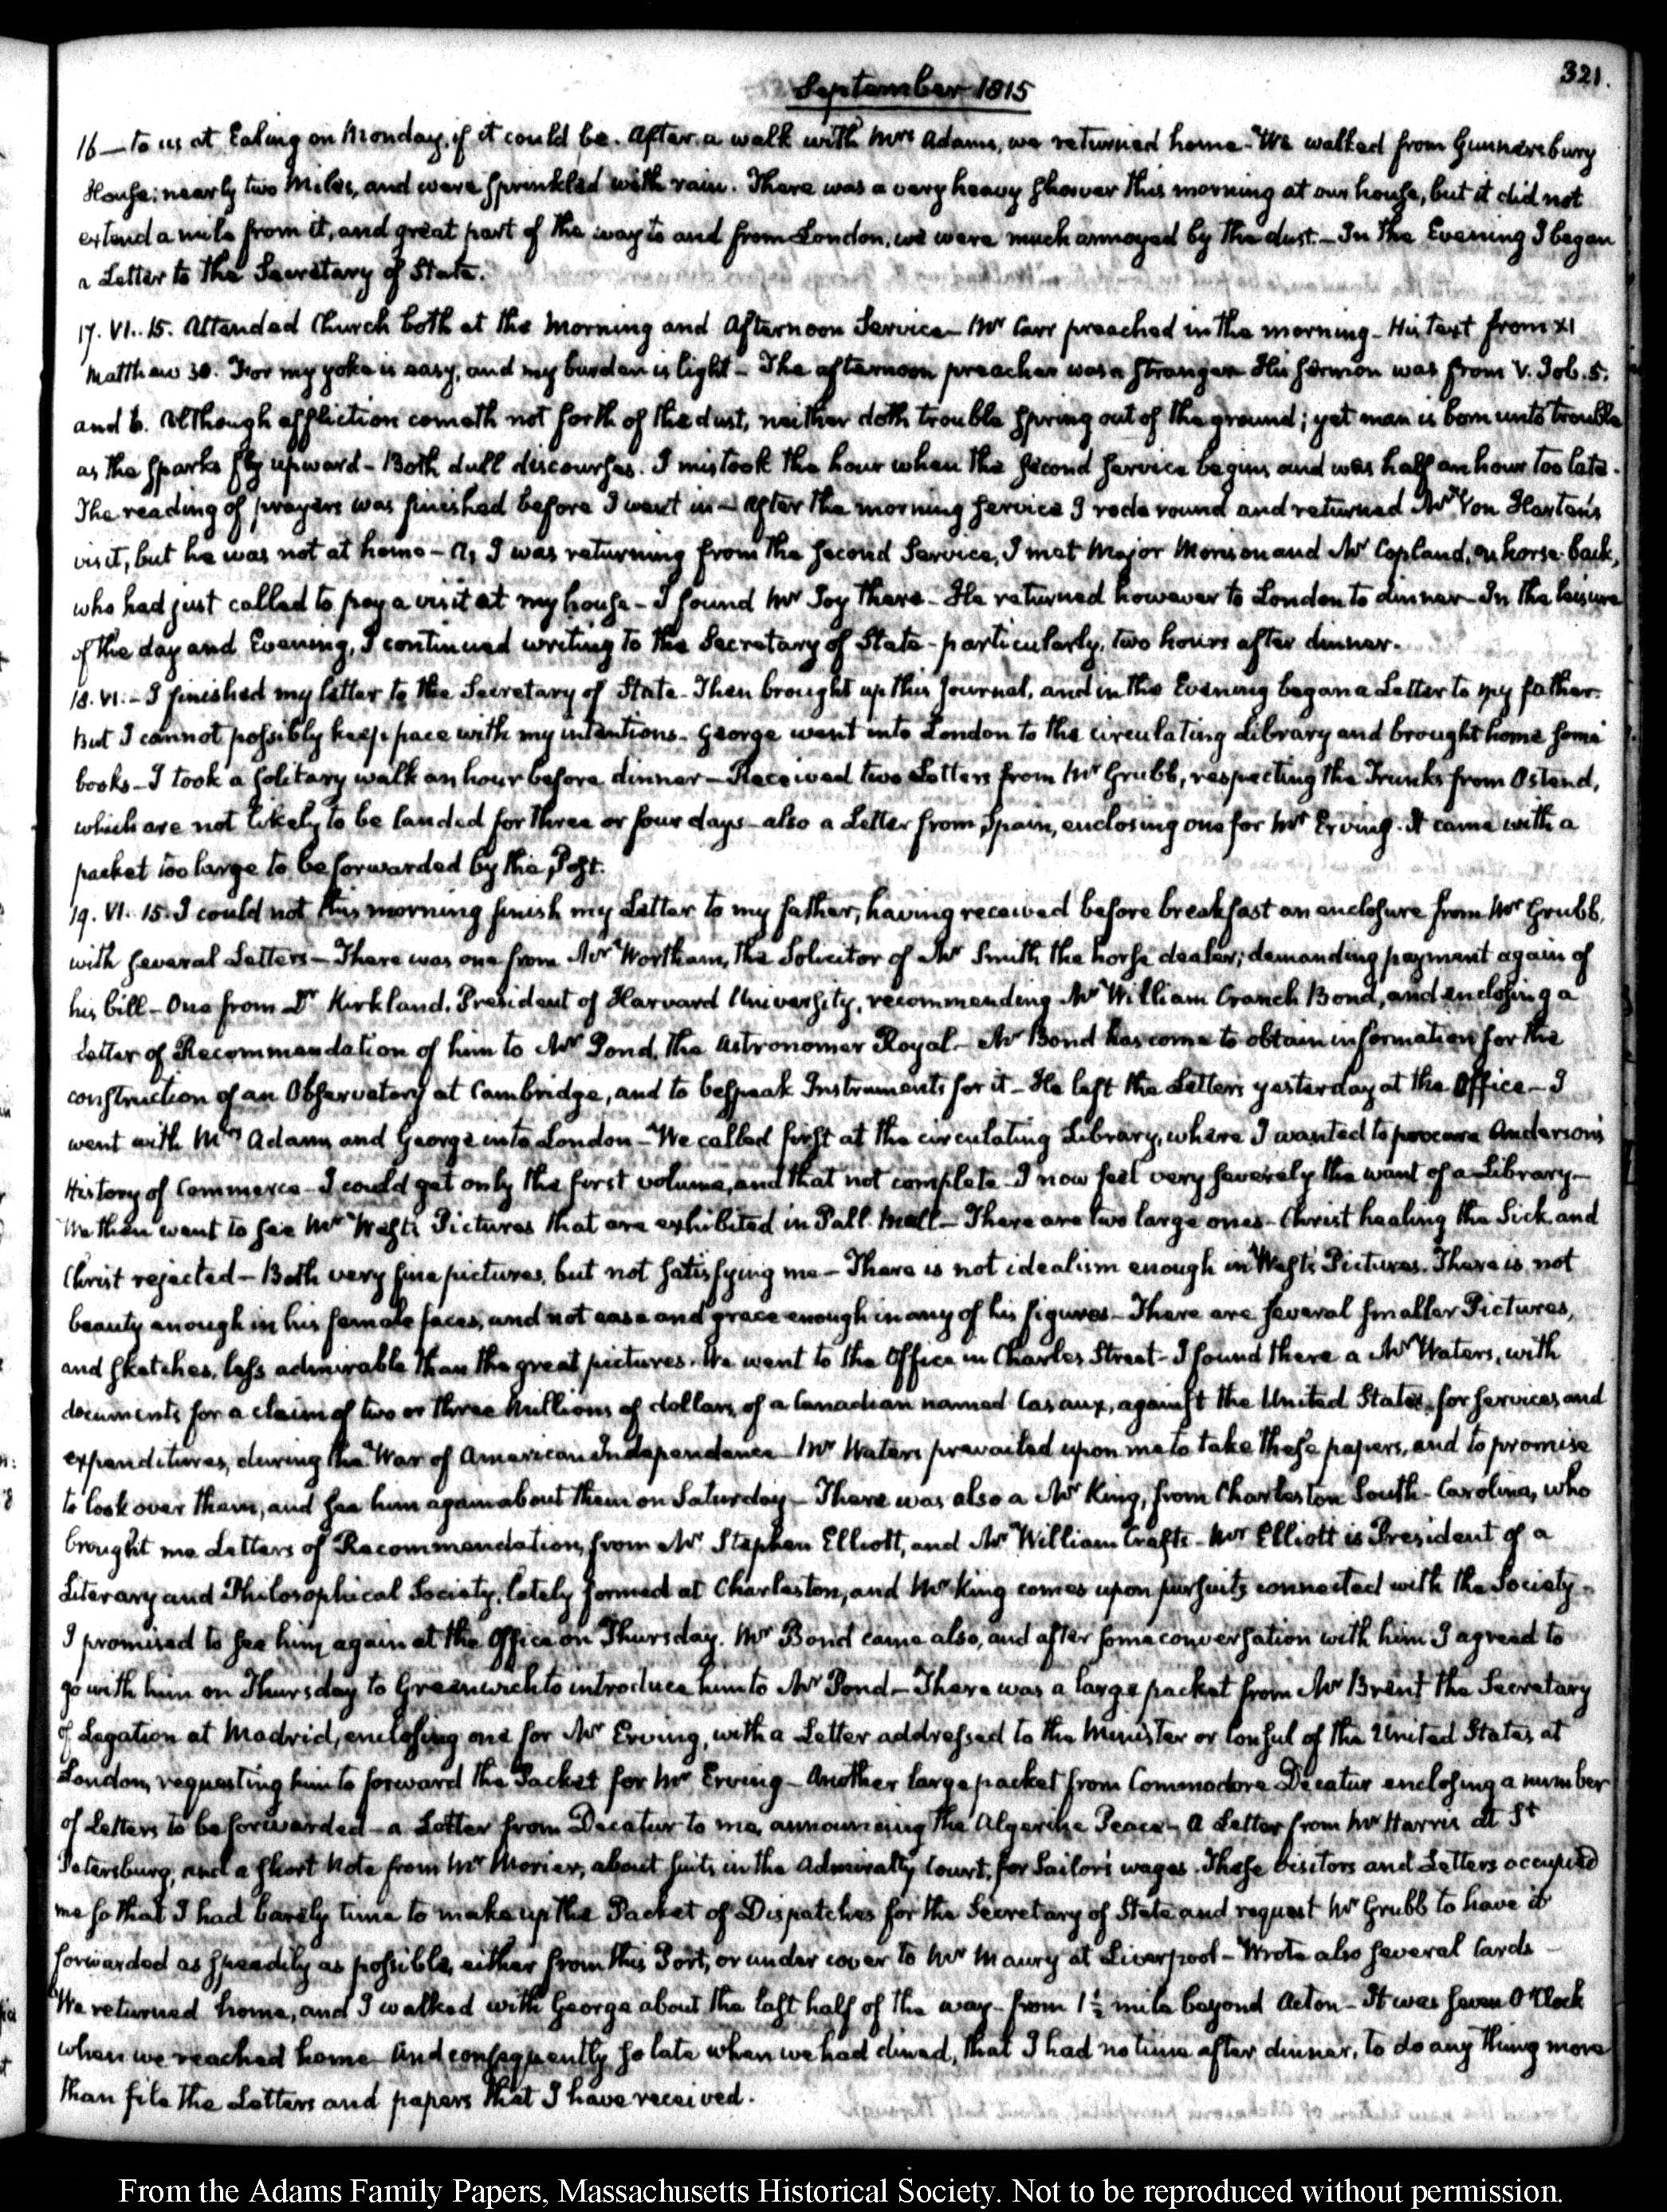 321.
September 1815
16 — to us at Ealing on Monday, if it could be. After a walk with Mrs Adams, we returned home. We walked from Gunnersbury
House; nearly two Miles, and were sprinkled with rain. There was a very heavy shower this morning at our house, but it did not
extend a mile from it, and great part of the way to and from London, we were much annoyed by the dust. — In the Evening I began
a Letter to the Secretary of State.
17. VI.. 15. Attended Church both at the Morning and Afternoon Service — Mr Carr preached in the morning — His text from XI
Matthew 30. For my yoke is easy, and my burden is light — The afternoon preacher was a stranger His sermon was from V. Job. 5.
and 6. Although affliction cometh not forth of the dust, neither doth trouble spring out of the ground; yet man is born unto trouble
as the sparks fly upward — Both dull discourses. I mistook the hour when the second service begins and was half an hour too late.
The reading of prayers was finished before I went in — After the morning service I rode round and returned Mr Von Harten's
visit, but he was not at home — As I was returning from the second Service, I met Major Morison and Mr Copland, on horse-back,
who had just called to pay a visit at my house — I found Mr Joy there — He returned however to London to dinner — In the leisure
of the day and Evening, I continued writing to the Secretary of State — particularly, two hours after dinner.
18. VI. — I finished my letter to the Secretary of State — Then brought up this Journal, and in the Evening began a Letter to my father.
But I cannot possibly keep pace with my intentions — George went into London to the circulating Library and brought home some
books — I took a solitary walk an hour before dinner — Received two Letters from Mr Grubb, respecting the Trunks from Ostend,
which are not likely to be landed for three or four days — also a Letter from Spain, enclosing one for Mr Erving. It came with a
packet too large to be forwarded by the Post.
19. VI. 15. I could not this morning finish my Letter to my father, having received before breakfast an enclosure from Mr Grubb,
with several Letters — There was one from Mr Wortham, the Solicitor of Mr Smith the horse dealer; demanding payment again of
his bill — One from Dr Kirkland, President of Harvard University, recommending Mr William Cranch Bond, and enclosing a
Letter of Recommendation of him to Mr Pond, the Astronomer Royal — Mr Bond has come to obtain information for the
construction of an Observatory at Cambridge, and to bespeak Instruments for it — He left the Letters yesterday at the Office — I
went with Mrs Adams and George into London — We called first at the circulating Library, where I wanted to procure Anderson's
History of Commerce — I could get only the first volume, and that not complete — I now feel very severely the want of a Library —
We then went to see Mr West's Pictures that are exhibited in Pall Mall — There are two large ones — Christ healing the Sick, and
Christ rejected — Both very fine pictures, but not satisfying me — There is not idealism enough in West's Pictures. There is not
beauty enough in his female faces, and not ease and grace enough in any of his figures — There are several smaller Pictures,
and sketches, less admirable than the great pictures. We went to the Office in Charles Street — I found there a Mr Waters, with
documents for a claim of two or three Millions of dollars, of a Canadian named Cazaux, against the United States, for services and
expenditures, during the War of American Independence — Mr Waters prevailed upon me to take these papers, and to promise
to look over them, and see him again about them on Saturday — There was also a Mr King, from Charleston South-Carolina, who
brought me Letters of Recommendation, from Mr Stephen Elliott, and Mr William Crafts — Mr Elliott is President of a
Literary and Philosophical Society, lately formed at Charleston, and Mr King comes upon pursuits connected with the Society —
I promised to see him again at the Office on Thursday. Mr Bond came also, and after some conversation with him I agreed to
go with him on Thursday to Greenwich to introduce him to Mr Pond — There was a large packet from Mr Brent the Secretary
of Legation at Madrid, enclosing one for Mr Erving, with a Letter addressed to the Minister or Consul of the United States at
London, requesting him to forward the Packet for Mr Erving — Another large packet from Commodore Decatur enclosing a number
of Letters to be forwarded — a Letter from Decatur to me, announcing the Algerine Peace — A Letter from Mr Harris at St
Petersburg, and a short Note from Mr Morier, about suits in the Admiralty Court, for Sailor's wages. These visitors and Letters occupied
me so that I had barely time to make up the Packet of Dispatches for the Secretary of State and request Mr Grubb to have it
forwarded as speedily as possible, either from this Port, or under cover to Mr Maury at Liverpool — Wrote also several Cards —
We returned home, and I walked with George about the last half of the way — from 1½ mile beyond Acton — It was seven O'Clock
when we reached home and consequently so late when we had dined, that I had no time after dinner, to do any thing more
than file the Letters and papers that I have received.
From the Adams Family Papers, Massachusetts Historical Society. Not to be reproduced without permission.